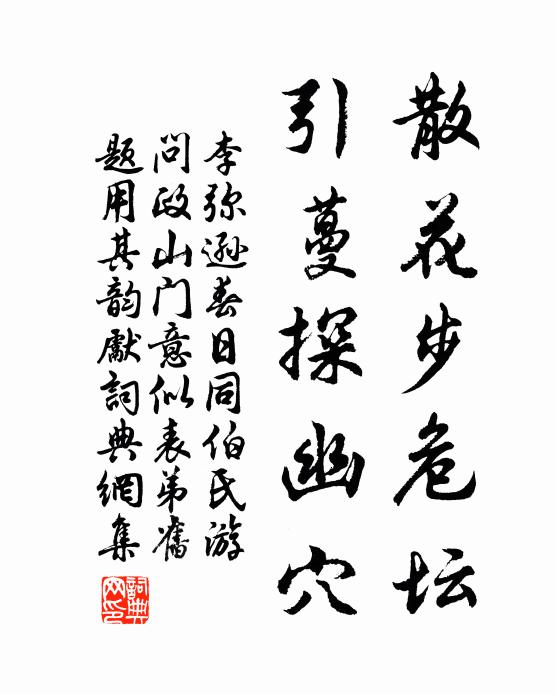 散花步危坛
引蔓探幽穴
李弥逊春日同伯氏游
问政山门意似表弟旧
题用其韵献詞典網集
詞典